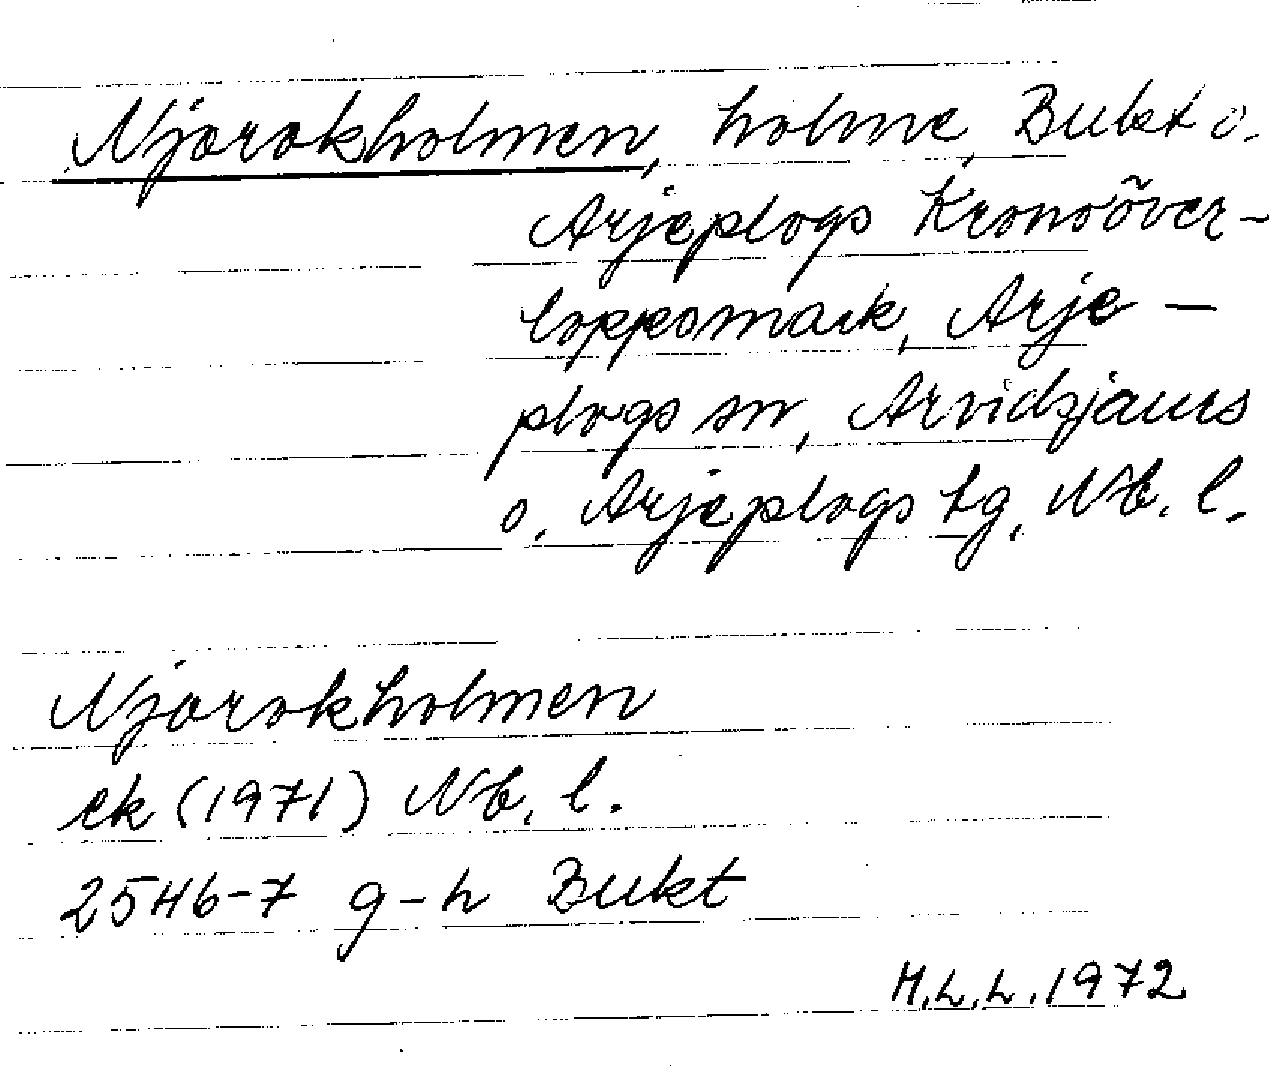 Njarokholmen, holme, Bukt o.
Arjeplogs Kronoöver-
loppsmark, Arje-
plogs sn, Arvidsjaurs
o. Arjeplogs tg, Nb. l.
Njarokholmen
ek (1971) Nb. l.
25H6-7 g-h Bukt
M.L.L. 1972